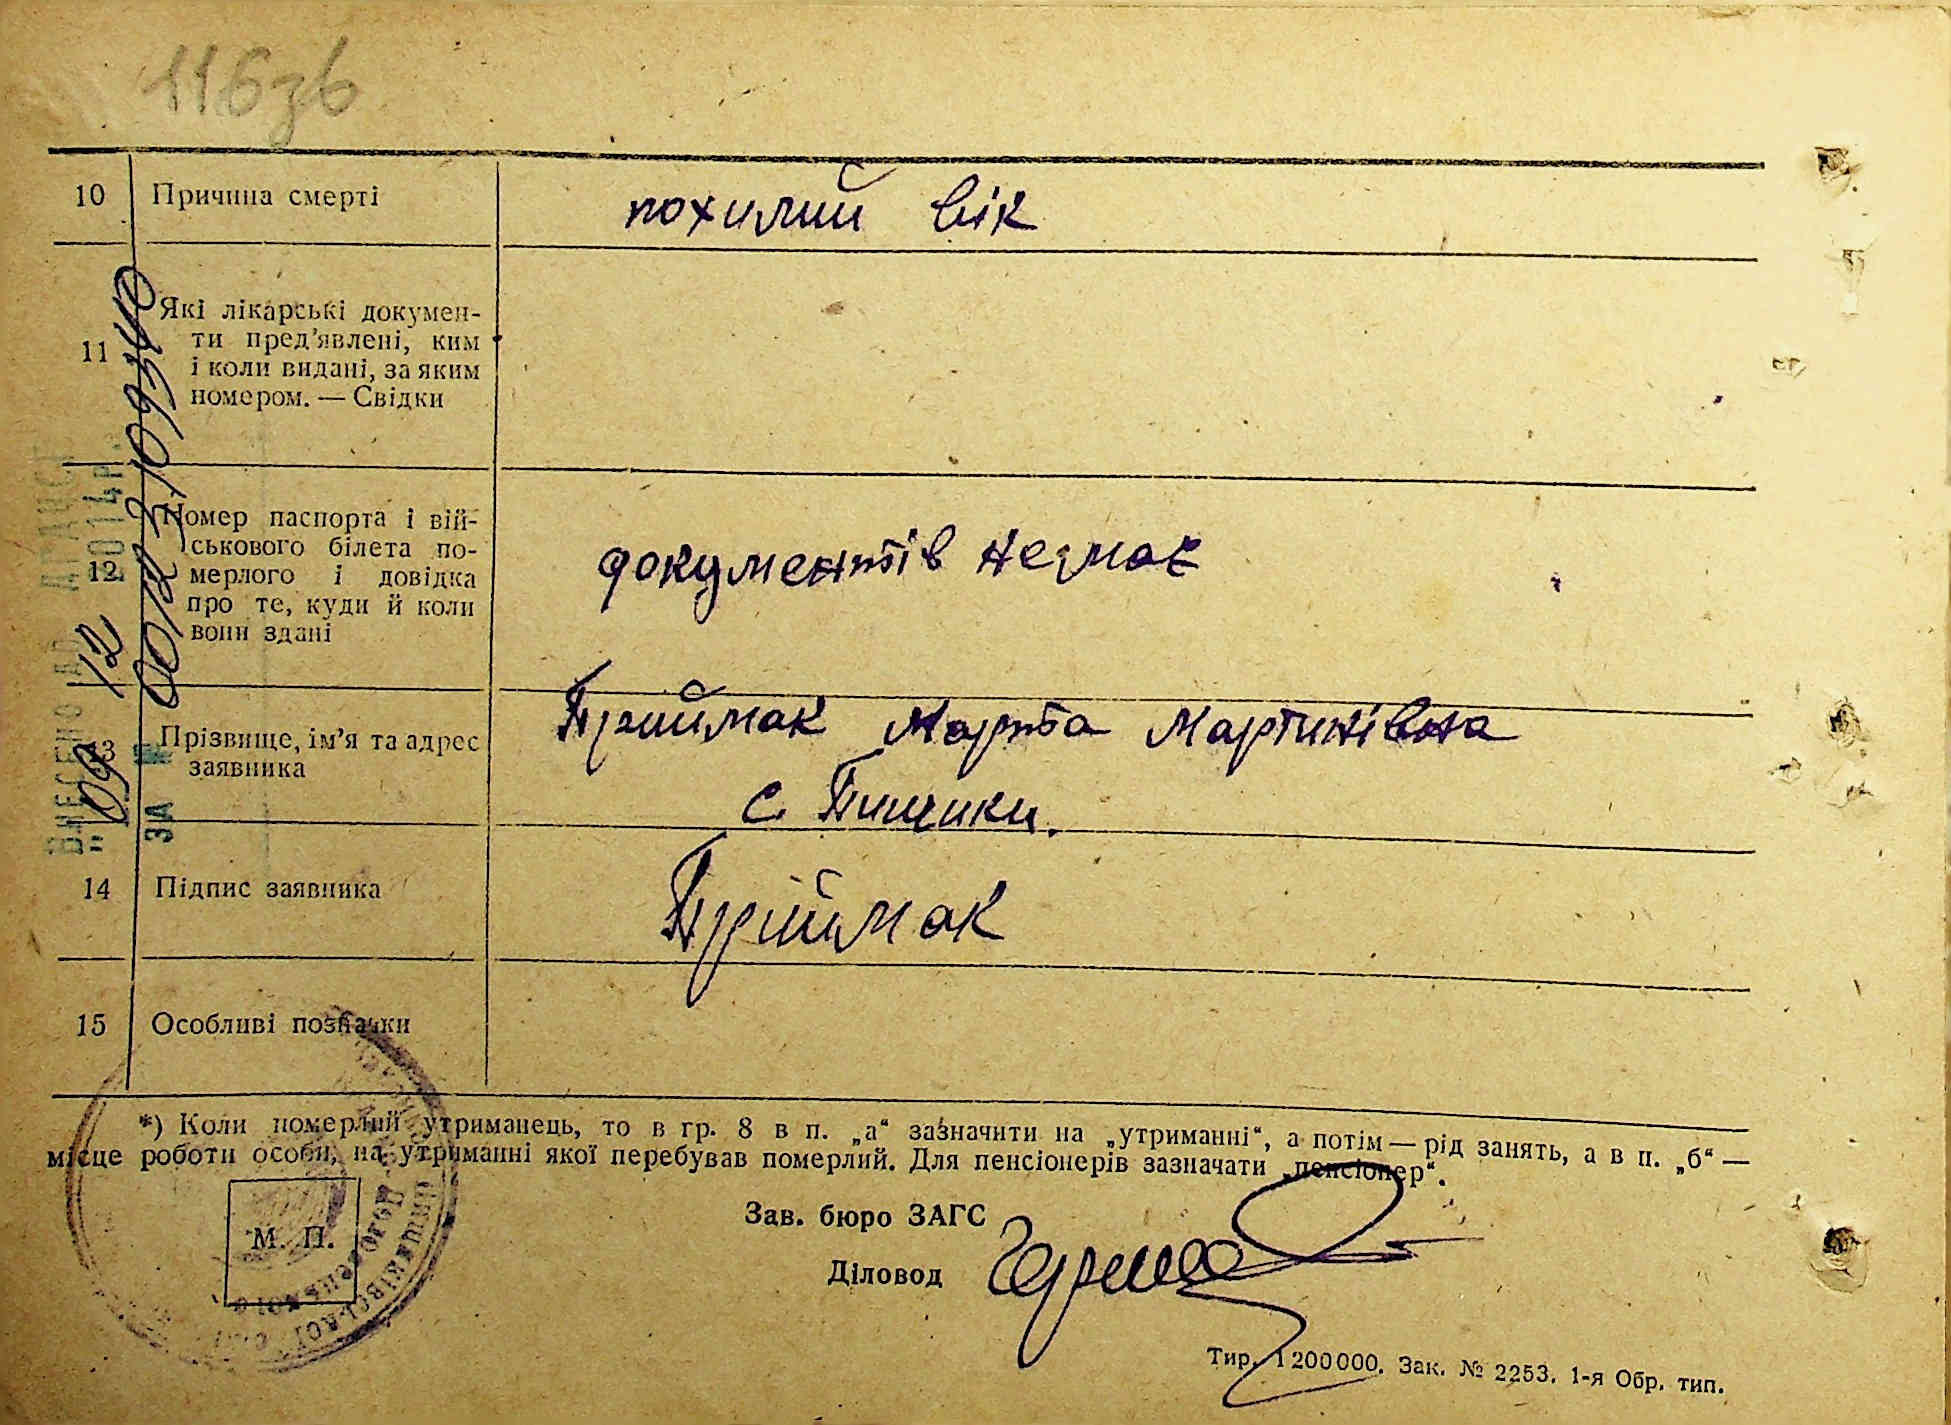 116зв
10 Причина смерті похилий вік
11 Які лікарські докумен-
ти пред’явлені, ким
і коли видані, за яким
номером. — Свідки
12 Номер паспорта і вій-
ськового білета по-
мерлого і довідка
про те, куди й коли
вони здані
документів немає
13 Прізвище, ім’я та адрес
заявника
Приймак Марта Мартинівна
с. Пищики.
14 Підпис заявника Приймак
15 Особливі позначки
*) Коли померлий утриманець, то в гр. 8 в п. „а“ зазначити на „утриманні“, а потім — рід занять, а в п. „б“ —
місце роботи особи, на утриманні якої перебував померлий. Для пенсіонерів зазначати „пенсіонер“.
М. П.
Зав. бюро ЗАГС
Діловод
Тир. 1 200 000. Зак. № 2253. 1-я Обр. тип.
ВНЕСЕНО ДО
09 12 2014р.
ЗА № 00123109340